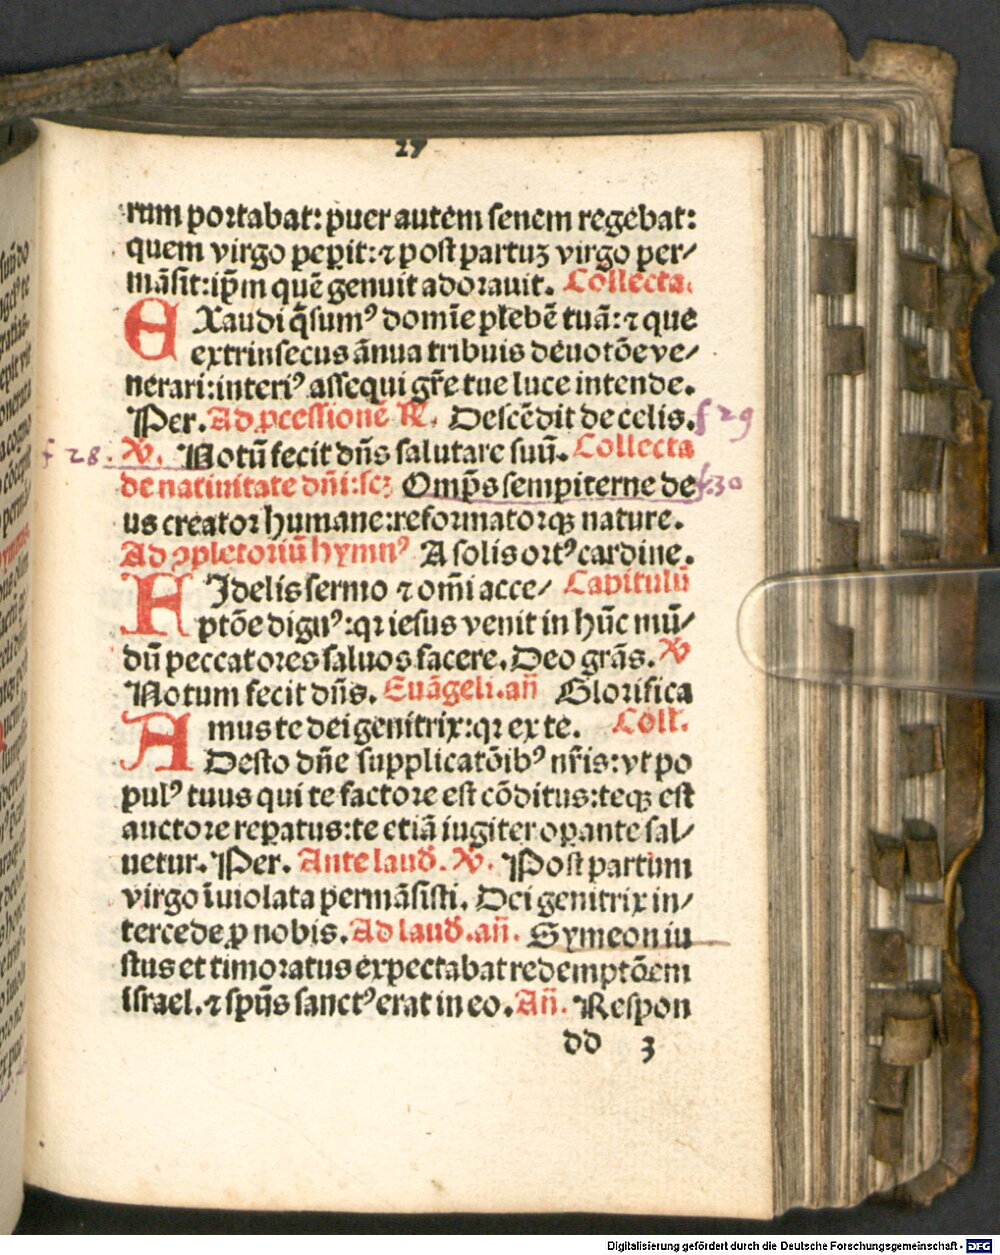 27
rum portabat: puer autem senem regebat:
quem virgo peperit: ⁊ post partuꝫ virgo per⸗
mãsit: ip̃m quẽ genuit adorauit. Collecta.
EXaudi q̃sumꝰ domĩe plebẽ tuã: ⁊ que
extrinsecus ãnua tribuis deuotõe ve⸗
nerari: interiꝰ assequi gr̃e tue luce intende.
Per. Ad ꝓcessionẽ ℟. Descẽdit de celis. f 29
f 28. ℣. Notũ fecit dñs salutare suũ. Collecta
de natiuitate dñi: scꝫ Omp̃s sempiterne de f. 30
us creator humane: reformatorqꝫ nature.
Ad ꝯpletoriũ hymnꝰ A solis ortꝰ cardine.
FIdelis sermo ⁊ om̃i acce⸗ Capitulũ
ptõe dignꝰ: qꝛ iesus venit in hũc mũ⸗
dũ peccatores saluos facere. Deo grãs. ℣
Notum fecit dñs. Euãgeli. añ Glorifica
mus te dei genitrix: qꝛ ex te. Coll.
ADesto dñe supplicatõibꝰ nr̃is: vt po
pulꝰ tuus qui te factore est cõditus: teqꝫ est
auctore reꝑatus: te etiã iugiter oꝑante sal⸗
uetur. Per. Ante laud. ℣. Post partum
virgo ĩuiolata permãsisti. Dei genitrix in⸗
tercede ꝓ nobis. Ad laud. añ. Symeon iu
stus et timoratus expectabat redemptõem
israel. ⁊ spũs sanctꝰ erat in eo. Añ. Respon
dd 3
Digitalisierung gefördert durch die Deutsche Forschungsgemeinschaft - DFG